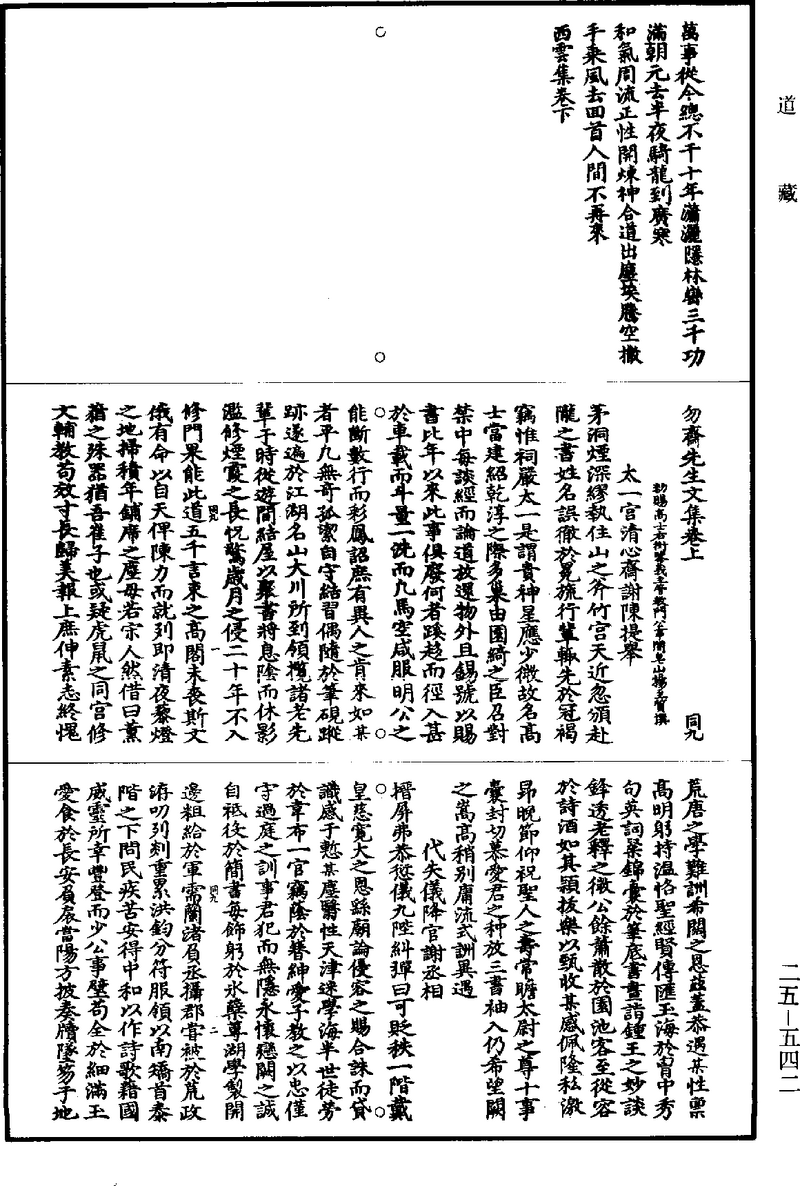 道藏
萬事從今總不干十年瀟灑隱林巒三千功
滿朝元去半夜騎龍到廣寒
和氣周流正性開煉神合道出塵埃騰空撒
手乘風去回首人間不再來
西雲集卷下
勿齋先生文集卷上 同九
太一宮清心齋謝陳提舉
茅洞煙深繆執住山之斧竹宮天近忽頒赴
隴之書姓名誤徹於冕旒行輩輙先於冠褐
竊惟祠嚴太一是謂貴神星應少微故名高
士當建紹乾淳之際多巢由園綺之臣召對
禁中每談經而論道放還物外且錫號以賜
書比年以來此事俱廢何者蹊趍而徑入甚
於車載而斗量一洗而凡馬空咸服明公之
能斷數行而彩鳳詔庶有異人之肯來如某
者平凡無奇孤潔自守結習偶隨於筆硯蹤
跡遂遍於江湖名山大川所到領攬諸老先
輩于時從遊間結屋以聚書將息陰而休影
濫修煙霞之長恍驚歲月之侵二十年不入
修門果能此道五千言束之高閣未喪斯文
俄有命以自天俾陳力而就列即清夜藜燈
之地掃積年鋪席之塵毋若宗人然借曰薰
蕕之殊器猶吾崔子也或疑虎鼠之同宮修
文輔教苟效寸長歸美報上庶伸素志終愧
同九 一
荒唐之學難訓希闊之恩茲蓋恭遇某性稟
高明躬持溫恪聖經賢傳匯玉海於胷中秀
句英詞粲錦囊於筆底書畫詣鍾王之妙談
鋒透老釋之微公餘蕭散於園池客至從容
於詩酒如其穎拔樂以甄收某感佩隆私激
昂晚節仰祝聖人之壽常瞻太尉之尊十事
囊封切慕愛君之种放三書袖入仍希望闕
之嵩高稍別庸流式詶異遇
代失儀降官謝丞相
搢屏弗恭愆儀九陛糾彈曰可貶秩一階戴
皇慈寬大之恩繇廟論優容之賜合誅而貸
識感于慙某塵翳性天津迷學海半世徒勞
於韋布一官竊蔭於簪紳愛子教之以忠僅
守過庭之訓事君犯而無隱永懷戀闕之誠
自祗役於簡書每飭躬於氷蘗尊湖學製開
邊粗給於軍需蘭渚負丞攝郡嘗被於荒政
洊叨列剡重累洪鈞分符服領以南矯首泰
階之下問民疾苦安得中和以作詩歌藉國
威靈所幸豐登而少公事壁苟全於細滿玉
愛食於長安負扆當陽方披奏牘墜笏于地
同九 二
二五－五四二